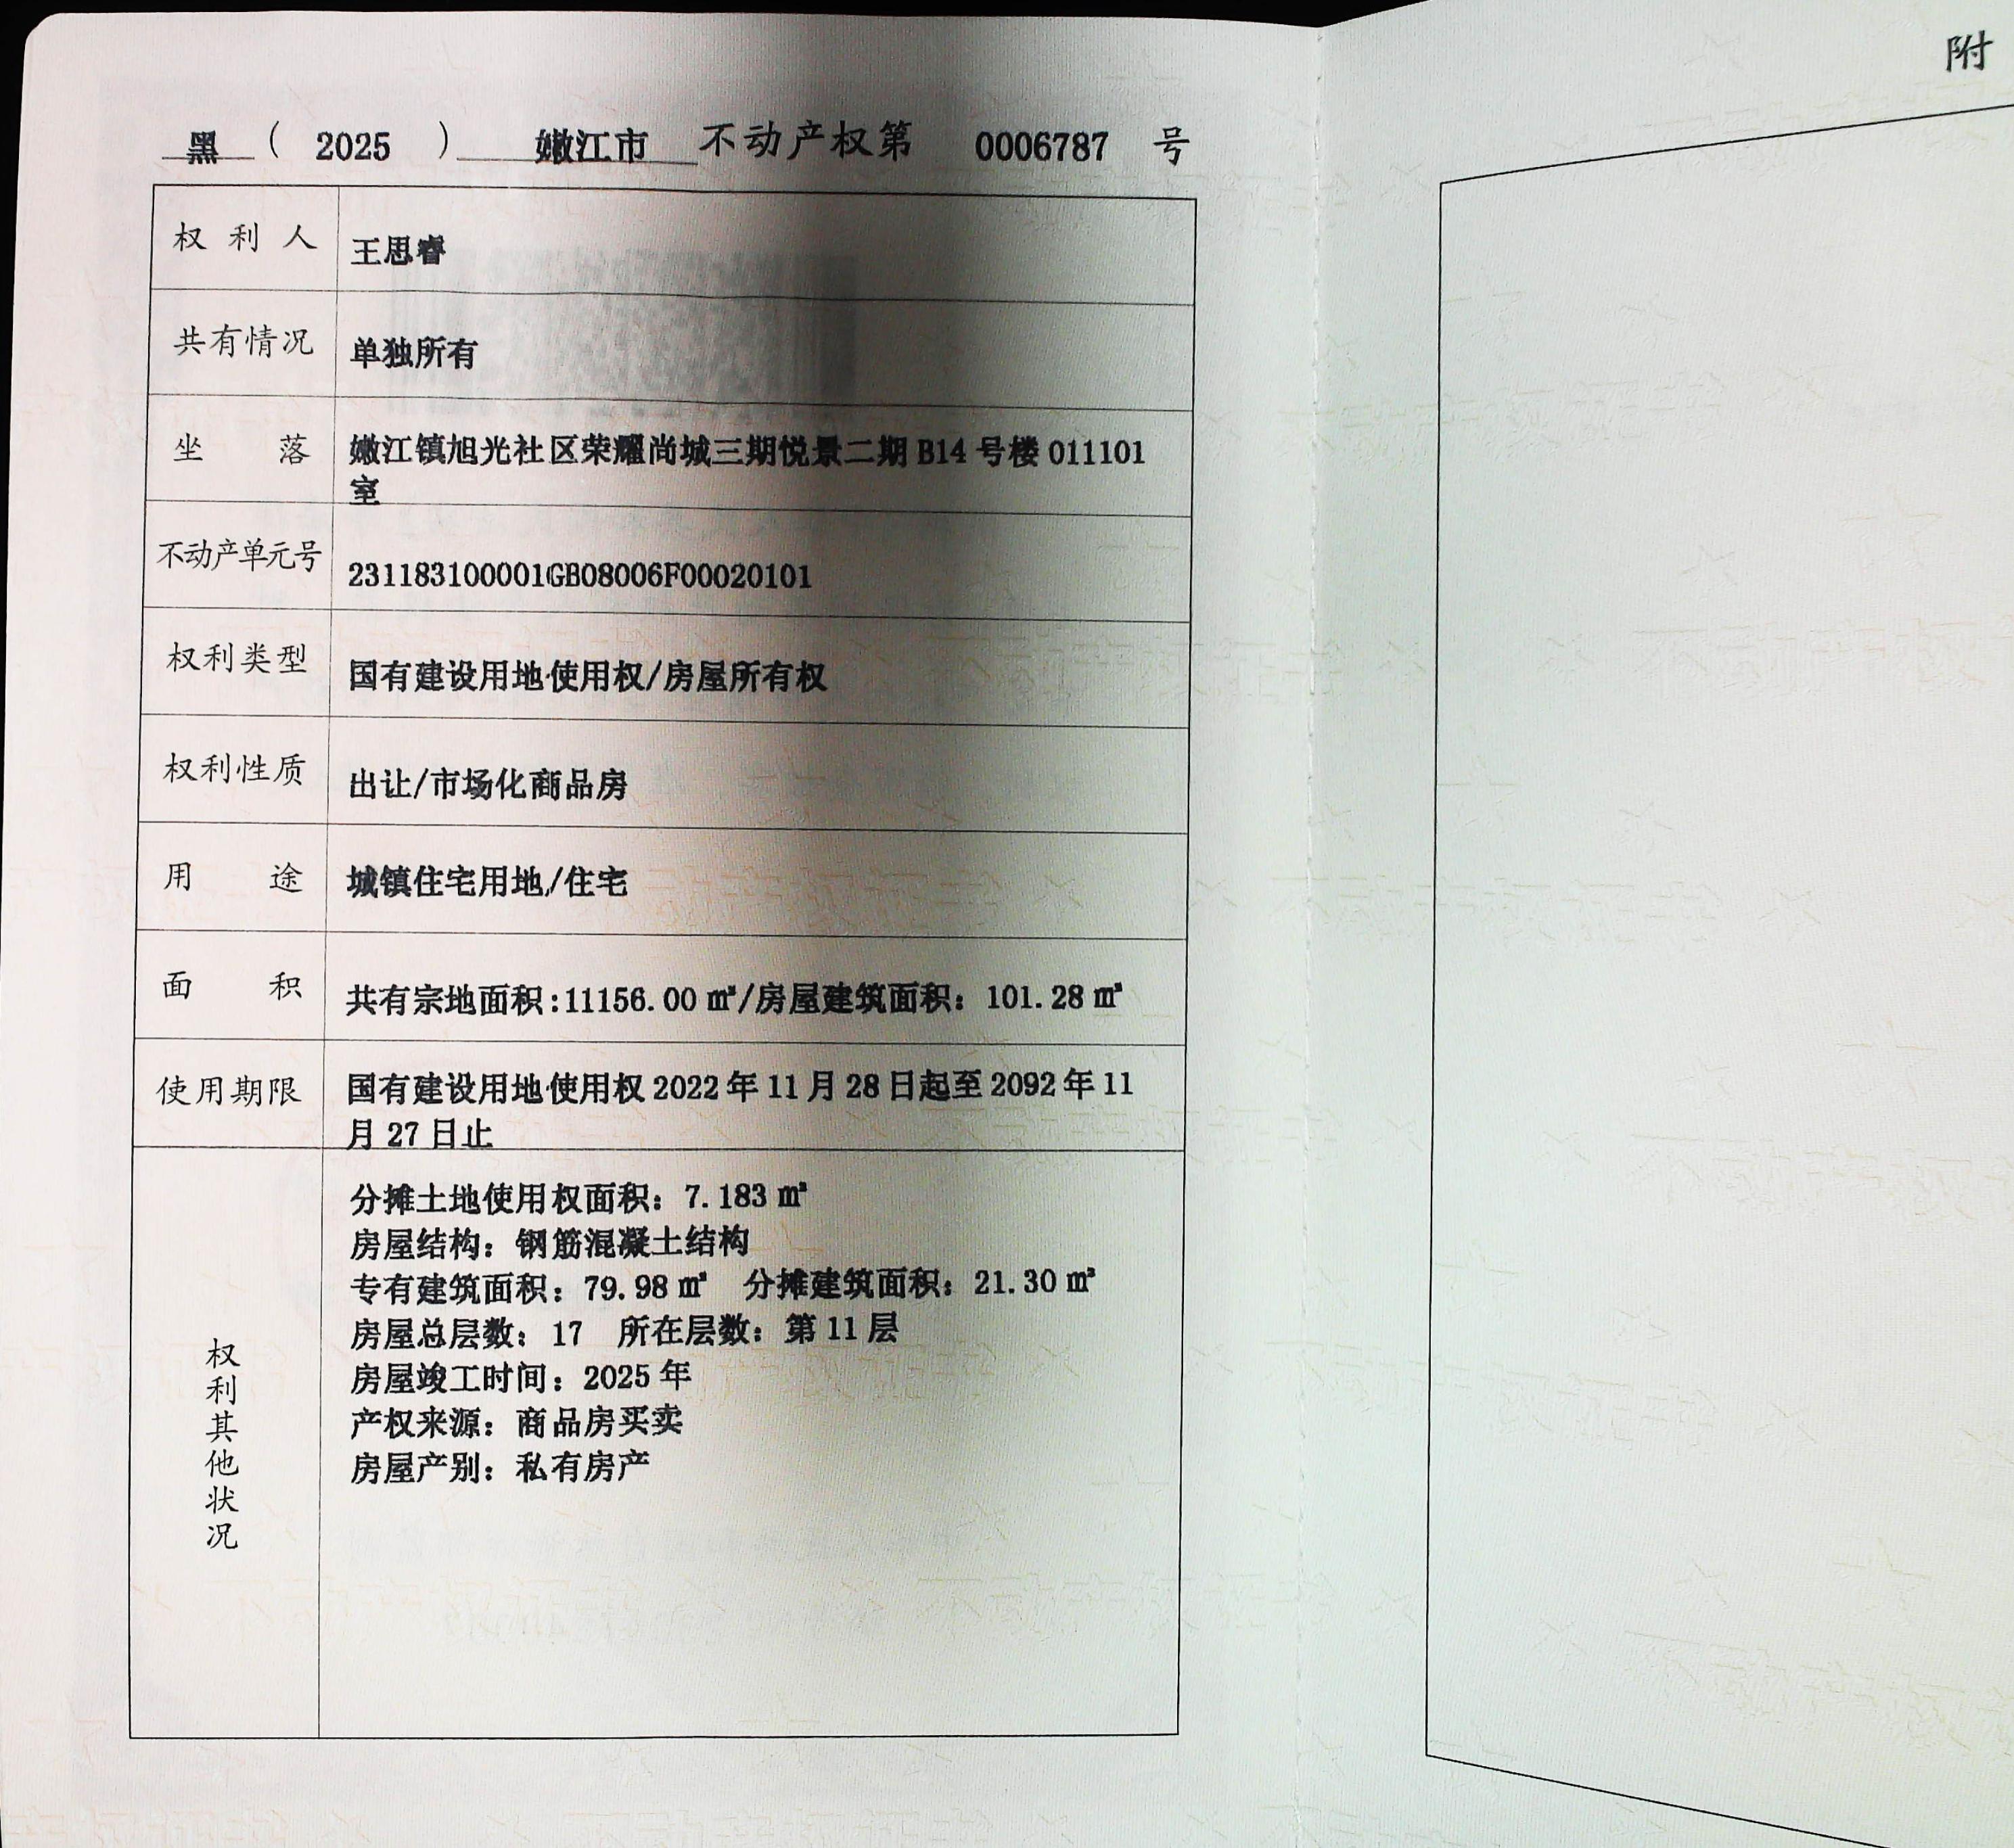 黑 ( 2025 ) 嫩江市 不动产权第 0006787 号
附
权利人 王思睿
共有情况 单独所有
坐落 嫩江镇旭光社区荣耀尚城三期悦景二期 B14 号楼 011101
室
不动产单元号 231183100001GB08006F00020101
权利类型 国有建设用地使用权/房屋所有权
权利性质 出让/市场化商品房
用途 城镇住宅用地/住宅
面积 共有宗地面积:11156.00 ㎡/房屋建筑面积: 101.28 ㎡
使用期限 国有建设用地使用权 2022 年 11 月 28 日起至 2092 年 11
月 27 日止
权利其他状况
分摊土地使用权面积: 7.183 ㎡
房屋结构: 钢筋混凝土结构
专有建筑面积: 79.98 ㎡ 分摊建筑面积: 21.30 ㎡
房屋总层数: 17 所在层数: 第 11 层
房屋竣工时间: 2025 年
产权来源: 商品房买卖
房屋产别: 私有房产